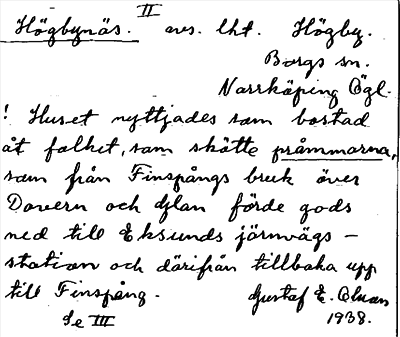 II
Högbynäs. avs. lht. Högby.
Borgs sn.
Norrköping Ögl.
! Huset nyttjades som bostad
åt folket, som skötte pråmmarna,
som från Finspångs bruk över
Dovern och Glan förde gods
ned till Eksunds järnvägs-
station och därifrån tillbaka upp
till Finspång. Gustaf E. Olsson
Se III 1938.